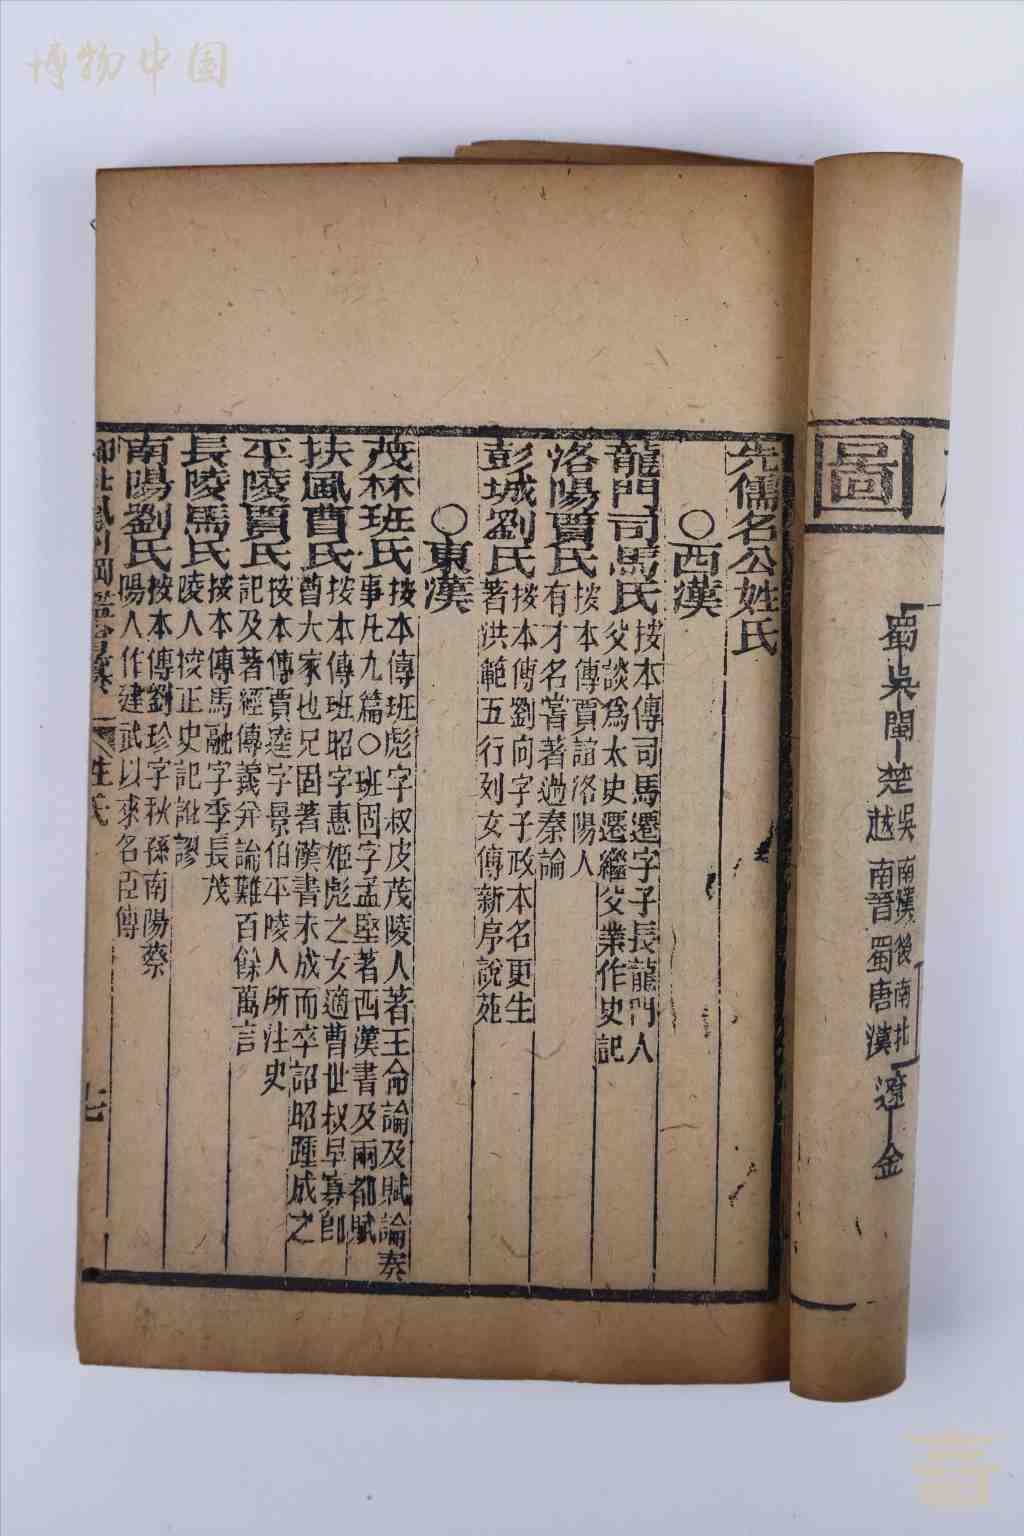 博物中国
圖
蜀吳閩楚
吳南漢後南北
越南晉蜀唐漢
遼金
先儒名公姓氏
○西漢
龍門司馬氏
按本傳司馬遷字子長龍門人
父談為太史遷繼父業作史記
洛陽賈氏
按本傳賈誼洛陽人
有才名嘗著過秦論
彭城劉氏
按本傳劉向字子政本名更生
著洪範五行列女傳新序說苑
○東漢
茂林班氏
按本傳班彪字叔皮茂陵人著王命論及賦論奏
事凡九篇○班固字孟堅著西漢書及兩都賦
扶風曹氏
按本傳班昭字惠姬彪之女適曹世叔早寡卽
曹大家也兄固著漢書未成而卒詔昭踵成之
平陵賈氏
按本傳賈逵字景伯平陵人所注史
記及著經傳義并論難百餘萬言
長陵馬氏
按本傳馬融字季長茂
陵人挍正史記訛謬
南陽劉氏
按本傳劉珍字秋孫南陽蔡
陽人作建武以來名臣傳
綱鑑
姓氏
七